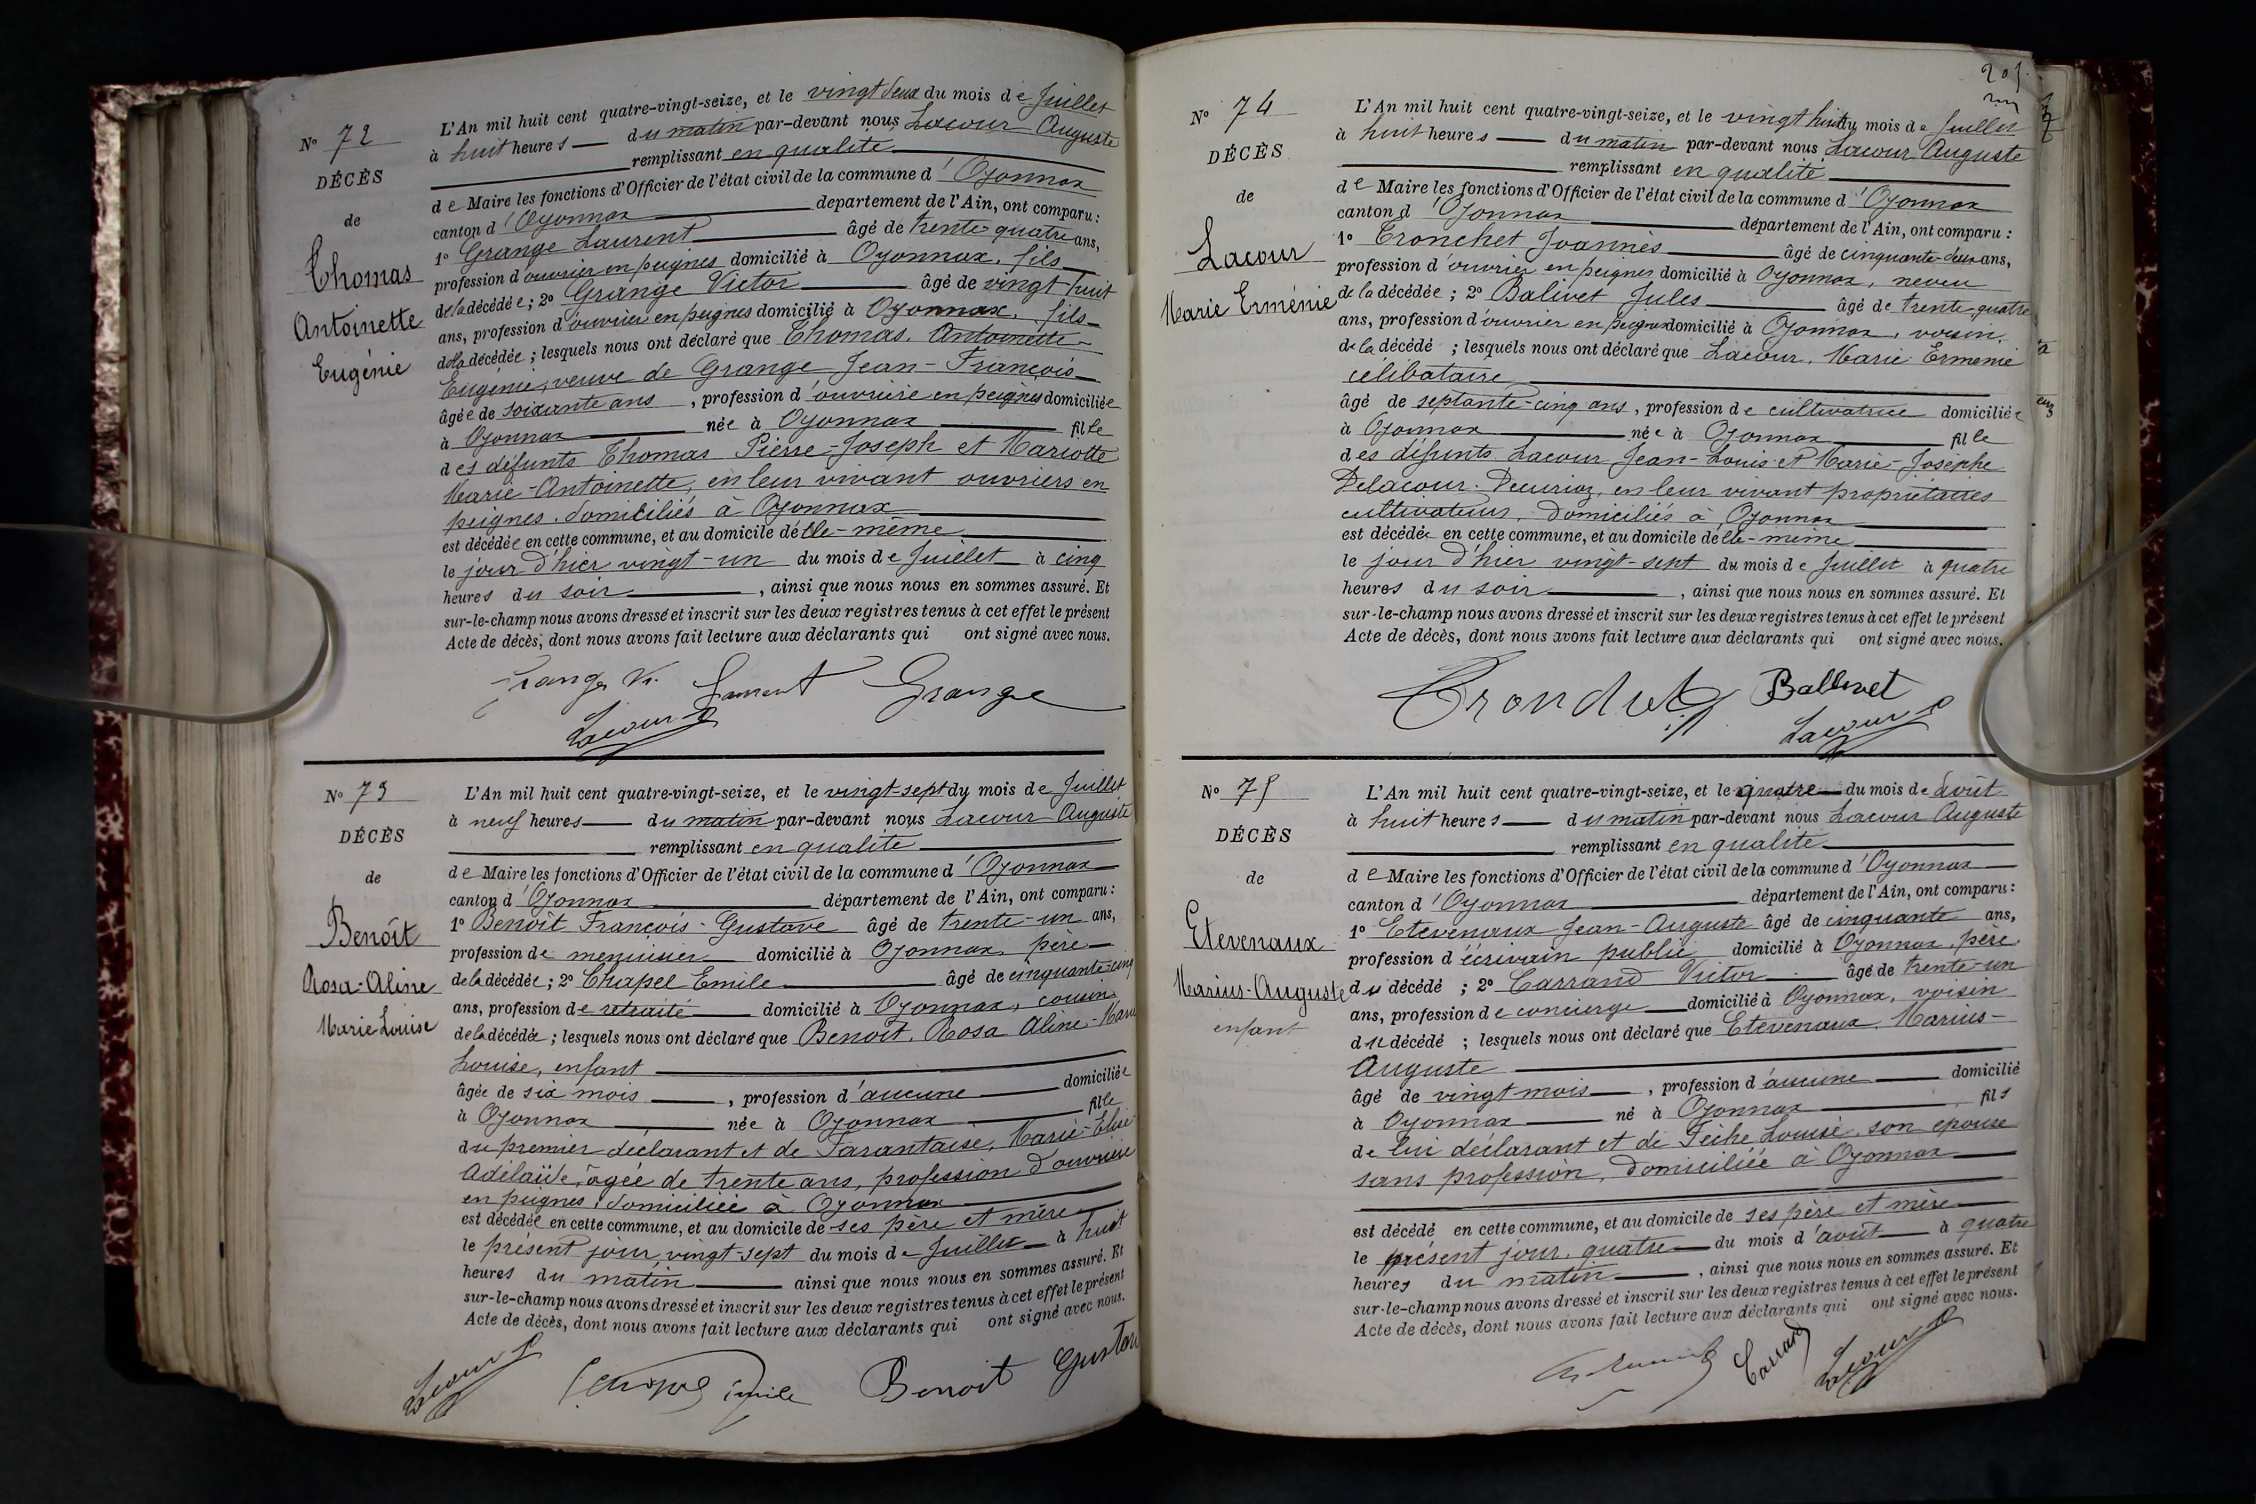 N° 72
DÉCÈS
de
Thomas
Antoinette
Eugénie
L'An mil huit cent quatre-vingt-seize, et le vingt deux du mois de Juillet
à huit heures du matin par-devant nous Lacour Auguste
remplissant en qualité
de Maire les fonctions d'Officier de l'état civil de la commune d'Oyonnax
canton d'Oyonnax departement de l'Ain, ont comparu :
1° Grange Laurent âgé de trente-quatre ans,
profession d'ouvrier en peignes domicilié à Oyonnax, fils
de la décédée ; 2° Grange Victor âgé de vingt huit
ans, profession d'ouvrier en peignes domicilié à Oyonnax, fils
de la décédée ; lesquels nous ont déclaré que Thomas, Antoinette
Eugénie, veuve de Grange Jean-François
âgée de soixante ans, profession d'ouvrière en peignes domiciliée
à Oyonnax née à Oyonnax fille
des défunts Thomas Pierre-Joseph et Mariotte
Marie-Antoinette, en leur vivant ouvriers en
peignes, domiciliés à Oyonnax
est décédée en cette commune, et au domicile d'elle-même
le jour d'hier vingt-un du mois de Juillet à cinq
heures du soir, ainsi que nous nous en sommes assuré. Et
sur-le-champ nous avons dressé et inscrit sur les deux registres tenus à cet effet le présent
Acte de décès, dont nous avons fait lecture aux déclarants qui ont signé avec nous.
Grange Vr. Laurent Grange
Lacour
N° 73
DÉCÈS
de
Benoît
Rosa-Aline
Marie Louise
L'An mil huit cent quatre-vingt-seize, et le vingt-sept du mois de Juillet
à neuf heures du matin par-devant nous Lacour Auguste
remplissant en qualité
de Maire les fonctions d'Officier de l'état civil de la commune d'Oyonnax
canton d'Oyonnax département de l'Ain, ont comparu :
1° Benoît François-Gustave âgé de trente-un ans,
profession de menuisier domicilié à Oyonnax, père
de la décédée ; 2° Chapel Emile âgé de cinquante-cinq
ans, profession de retraité domicilié à Oyonnax, cousin
de la décédée ; lesquels nous ont déclaré que Benoît, Rosa Aline-Marie
Louise, enfant
âgée de six mois, profession d'aucune domiciliée
à Oyonnax née à Oyonnax fille
du premier déclarant et de Tarantaise, Marie-Elise
Adélaïde, âgée de trente ans, profession d'ouvrière
en peignes, domiciliée à Oyonnax
est décédée en cette commune, et au domicile de ses père et mère
le présent jour, vingt-sept du mois de Juillet à huit
heures du matin ainsi que nous nous en sommes assuré. Et
sur-le-champ nous avons dressé et inscrit sur les deux registres tenus à cet effet le présent
Acte de décès, dont nous avons fait lecture aux déclarants qui ont signé avec nous.
Lacour Emile Benoit Gustave
201.
N° 74
DÉCÈS
de
Lacour
Marie Erménie
L'An mil huit cent quatre-vingt-seize, et le vingt huit du mois de Juillet
à huit heures du matin par-devant nous Lacour Auguste
remplissant en qualité
de Maire les fonctions d'Officier de l'état civil de la commune d'Oyonnax
canton d'Oyonnax département de l'Ain, ont comparu :
1° Tronchet Joannès âgé de cinquante-deux ans,
profession d'ouvrier en peignes domicilié à Oyonnax, neveu
de la décédée ; 2° Balivet Jules âgé de trente-quatre
ans, profession d'ouvrier en peignes domicilié à Oyonnax, voisin
de la décédé ; lesquels nous ont déclaré que Lacour, Marie Erménie
célibataire
âgé de septante-cinq ans, profession de cultivatrice domiciliée
à Oyonnax née à Oyonnax fille
des défunts Lacour Jean-Louis et Marie-Josèphe
Delacour-Decurioz, en leur vivant propriétaires
cultivateurs, domiciliés à Oyonnax
est décédée en cette commune, et au domicile d'elle-même
le jour d'hier vingt-sept du mois de Juillet à quatre
heures du soir, ainsi que nous nous en sommes assuré. Et
sur-le-champ nous avons dressé et inscrit sur les deux registres tenus à cet effet le présent
Acte de décès, dont nous avons fait lecture aux déclarants qui ont signé avec nous.
Ballivet
Lacour
N° 75
DÉCÈS
de
Etevenaux
Marius-Auguste
enfant
L'An mil huit cent quatre-vingt-seize, et le quatre du mois de Août
à huit heures du matin par-devant nous Lacour Auguste
remplissant en qualité
de Maire les fonctions d'Officier de l'état civil de la commune d'Oyonnax
canton d'Oyonnax département de l'Ain, ont comparu :
1° Etevenaux Jean-Auguste âgé de cinquante ans,
profession d'écrivain public domicilié à Oyonnax, père
du décédé ; 2° Carrand Victor âgé de trente-un
ans, profession de concierge domicilié à Oyonnax, voisin
du décédé ; lesquels nous ont déclaré que Etevenaux, Marius-
Auguste
âgé de vingt mois, profession d'aucune domicilié
à Oyonnax né à Oyonnax fils
de lui déclarant et de Féche Louise, son épouse
sans profession, domiciliée à Oyonnax
est décédé en cette commune, et au domicile de ses père et mère
le présent jour, quatre du mois d'août à quatre
heures du matin, ainsi que nous nous en sommes assuré. Et
sur-le-champ nous avons dressé et inscrit sur les deux registres tenus à cet effet le présent
Acte de décès, dont nous avons fait lecture aux déclarants qui ont signé avec nous.
Carrand Lacour